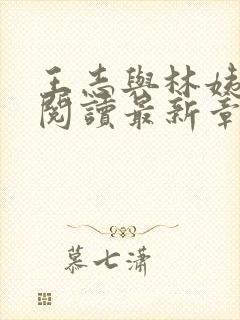 王志與林姊
閱讀最新章
慕七瀟